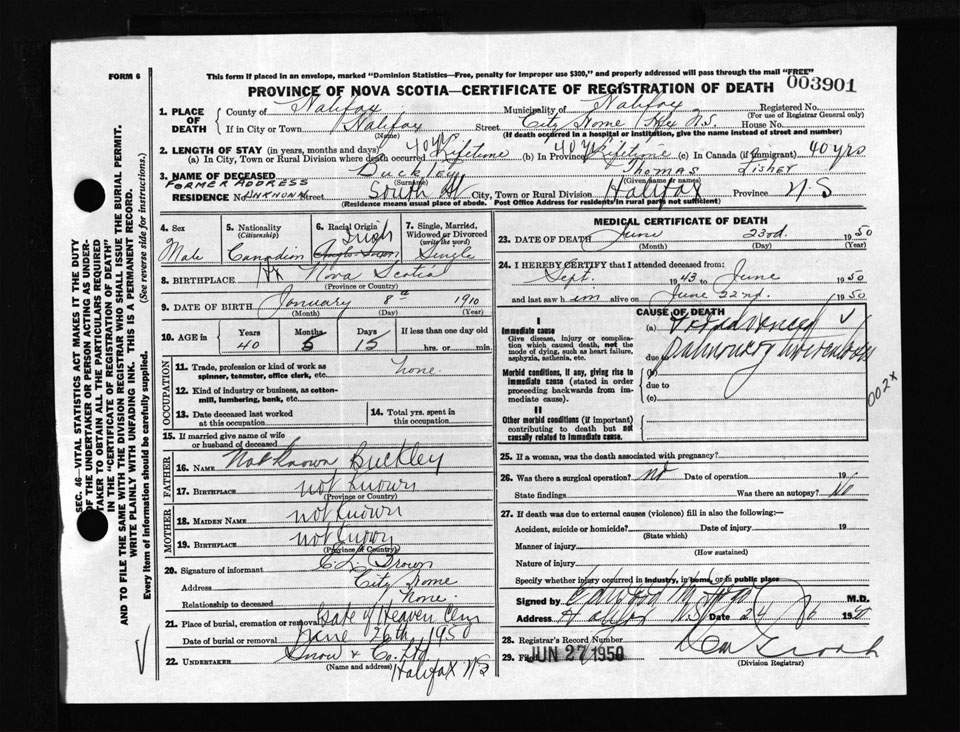 FORM 6
This form if placed in an envelope, marked "Dominion Statistics—Free, penalty for improper use $300," and properly addressed will pass through the mail "FREE"
003901
PROVINCE OF NOVA SCOTIA—CERTIFICATE OF REGISTRATION OF DEATH
1. PLACE OF DEATH County of Halifax Municipality of Halifax Registered No.
(For use of Registrar General only)
If in City or Town Halifax Street City Home Hfx N.S House No.
(Name) (If death occurred in a hospital or institution, give its name instead of street and number)
2. LENGTH OF STAY (in years, months and days)
(a) In City, Town or Rural Division where death occurred 40 yrs Lifetime (b) In Province 40 yrs Lifetime (c) In Canada (if immigrant) 40 yrs
3. NAME OF DECEASED Buckley Thomas Fisher
(Surname) (Given name or names)
FORMER ADDRESS
RESIDENCE No. UNKNOWN Street South St City, Town or Rural Division Halifax Province N.S
(Residence means usual place of abode. Post Office Address for residents in rural parts not sufficient)
4. Sex
Male
5. Nationality (Citizenship)
Canadian
6. Racial Origin
Irish
Anglo Saxon
7. Single, Married, Widowed or Divorced (write the word)
Single
8. BIRTHPLACE Nova Scotia
(Province or Country)
9. DATE OF BIRTH January 8th 1910
(Month) (Day) (Year)
10. AGE in Years Months Days If less than one day old
40 5 15 hrs. or min.
OCCUPATION
11. Trade, profession or kind of work as spinner, teamster, office clerk, etc. None.
12. Kind of industry or business, as cotton-mill, lumbering, bank, etc.
13. Date deceased last worked at this occupation
14. Total yrs. spent in this occupation
15. If married give name of wife or husband of deceased
FATHER
16. NAME Not Known Buckley
17. BIRTHPLACE not known
(Province or Country)
MOTHER
18. MAIDEN NAME not known
19. BIRTHPLACE not known
(Province or Country)
20. Signature of informant C L Brown
Address City Home
Relationship to deceased None.
21. Place of burial, cremation or removal Gate of Heaven Cem
Date of burial or removal June 26th, 1950
22. UNDERTAKER Snow & Co. Ltd
(Name and address) Halifax N.S
MEDICAL CERTIFICATE OF DEATH
23. DATE OF DEATH June 23rd. 1950
(Month) (Day) (Year)
24. I HEREBY CERTIFY that I attended deceased from:
Sept. 1943 to June 1950
and last saw him alive on June 22nd. 1950
CAUSE OF DEATH
I
Immediate cause
Give disease, injury or complication which caused death, not the mode of dying, such as heart failure, asphyxia, asthenia, etc.
(a) Far advanced
due to Pulmonary tuberculosis
002x
Morbid conditions, if any, giving rise to immediate cause (stated in order proceeding backwards from immediate cause).
(b)
due to
(c)
II
Other morbid conditions (if important) contributing to death but not causally related to immediate cause.
25. If a woman, was the death associated with pregnancy?
26. Was there a surgical operation? no Date of operation 19
State findings Was there an autopsy? No
27. If death was due to external causes (violence) fill in also the following:—
Accident, suicide or homicide? Date of injury 19
(State which)
Manner of injury
(How sustained)
Nature of injury
Specify whether injury occurred in industry, in home, or in public place
Signed by M.D.
Address Halifax N.S Date 24 1950
28. Registrar's Record Number
29. Filed JUN 27 1950
(Division Registrar)
SEC. 46—VITAL STATISTICS ACT MAKES IT THE DUTY
OF THE UNDERTAKER OR PERSON ACTING AS UNDER-
TAKER TO OBTAIN ALL THE PARTICULARS REQUIRED
IN THE "CERTIFICATE OF REGISTRATION OF DEATH"
AND TO FILE THE SAME WITH THE DIVISION REGISTRAR WHO SHALL ISSUE THE BURIAL PERMIT.
WRITE PLAINLY WITH UNFADING INK. THIS IS A PERMANENT RECORD.
Every item of information should be carefully supplied. (See reverse side for instructions.)